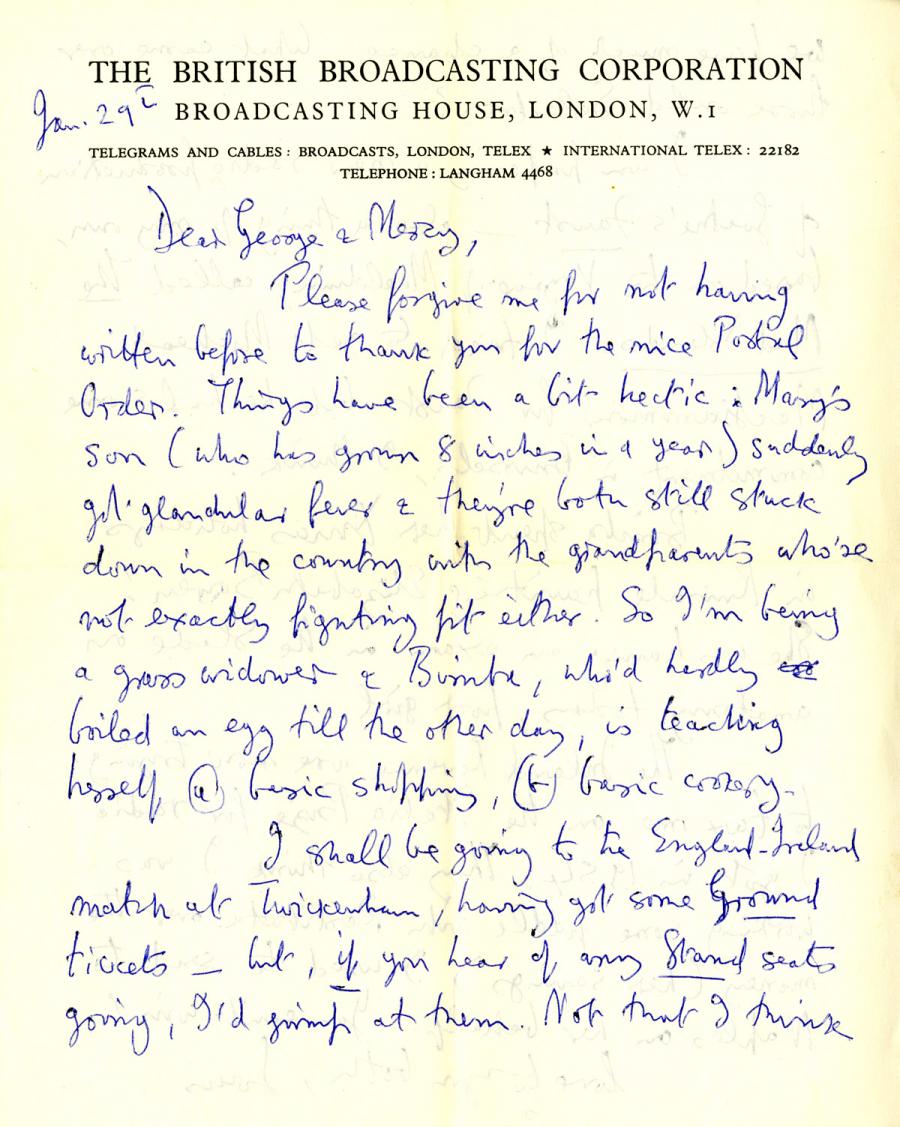 THE BRITISH BROADCASTING CORPORATION
Jan. 29th
BROADCASTING HOUSE, LONDON, W.1
TELEGRAMS AND CABLES: BROADCASTS, LONDON, TELEX ★ INTERNATIONAL TELEX: 22182
TELEPHONE: LANGHAM 4468
Dear George & Mercy,
Please forgive me for not having
written before to thank you for the nice Postal
Order. Things have been a bit hectic: Mary's
son (who has grown 8 inches in a year) suddenly
got glandular fever & they're both still stuck
down in the country with the grandparents who're
not exactly fighting fit either. So I'm being
a grass widower & Bimba, who'd hardly
boiled an egg till the other day, is teaching
herself, (a) basic shopping, (b) basic cookery.
I shall be going to the England-Ireland
match at Twickenham, having got some Ground
tickets — but, if you hear of any Stand seats
going, I'd jump at them. Not that I think